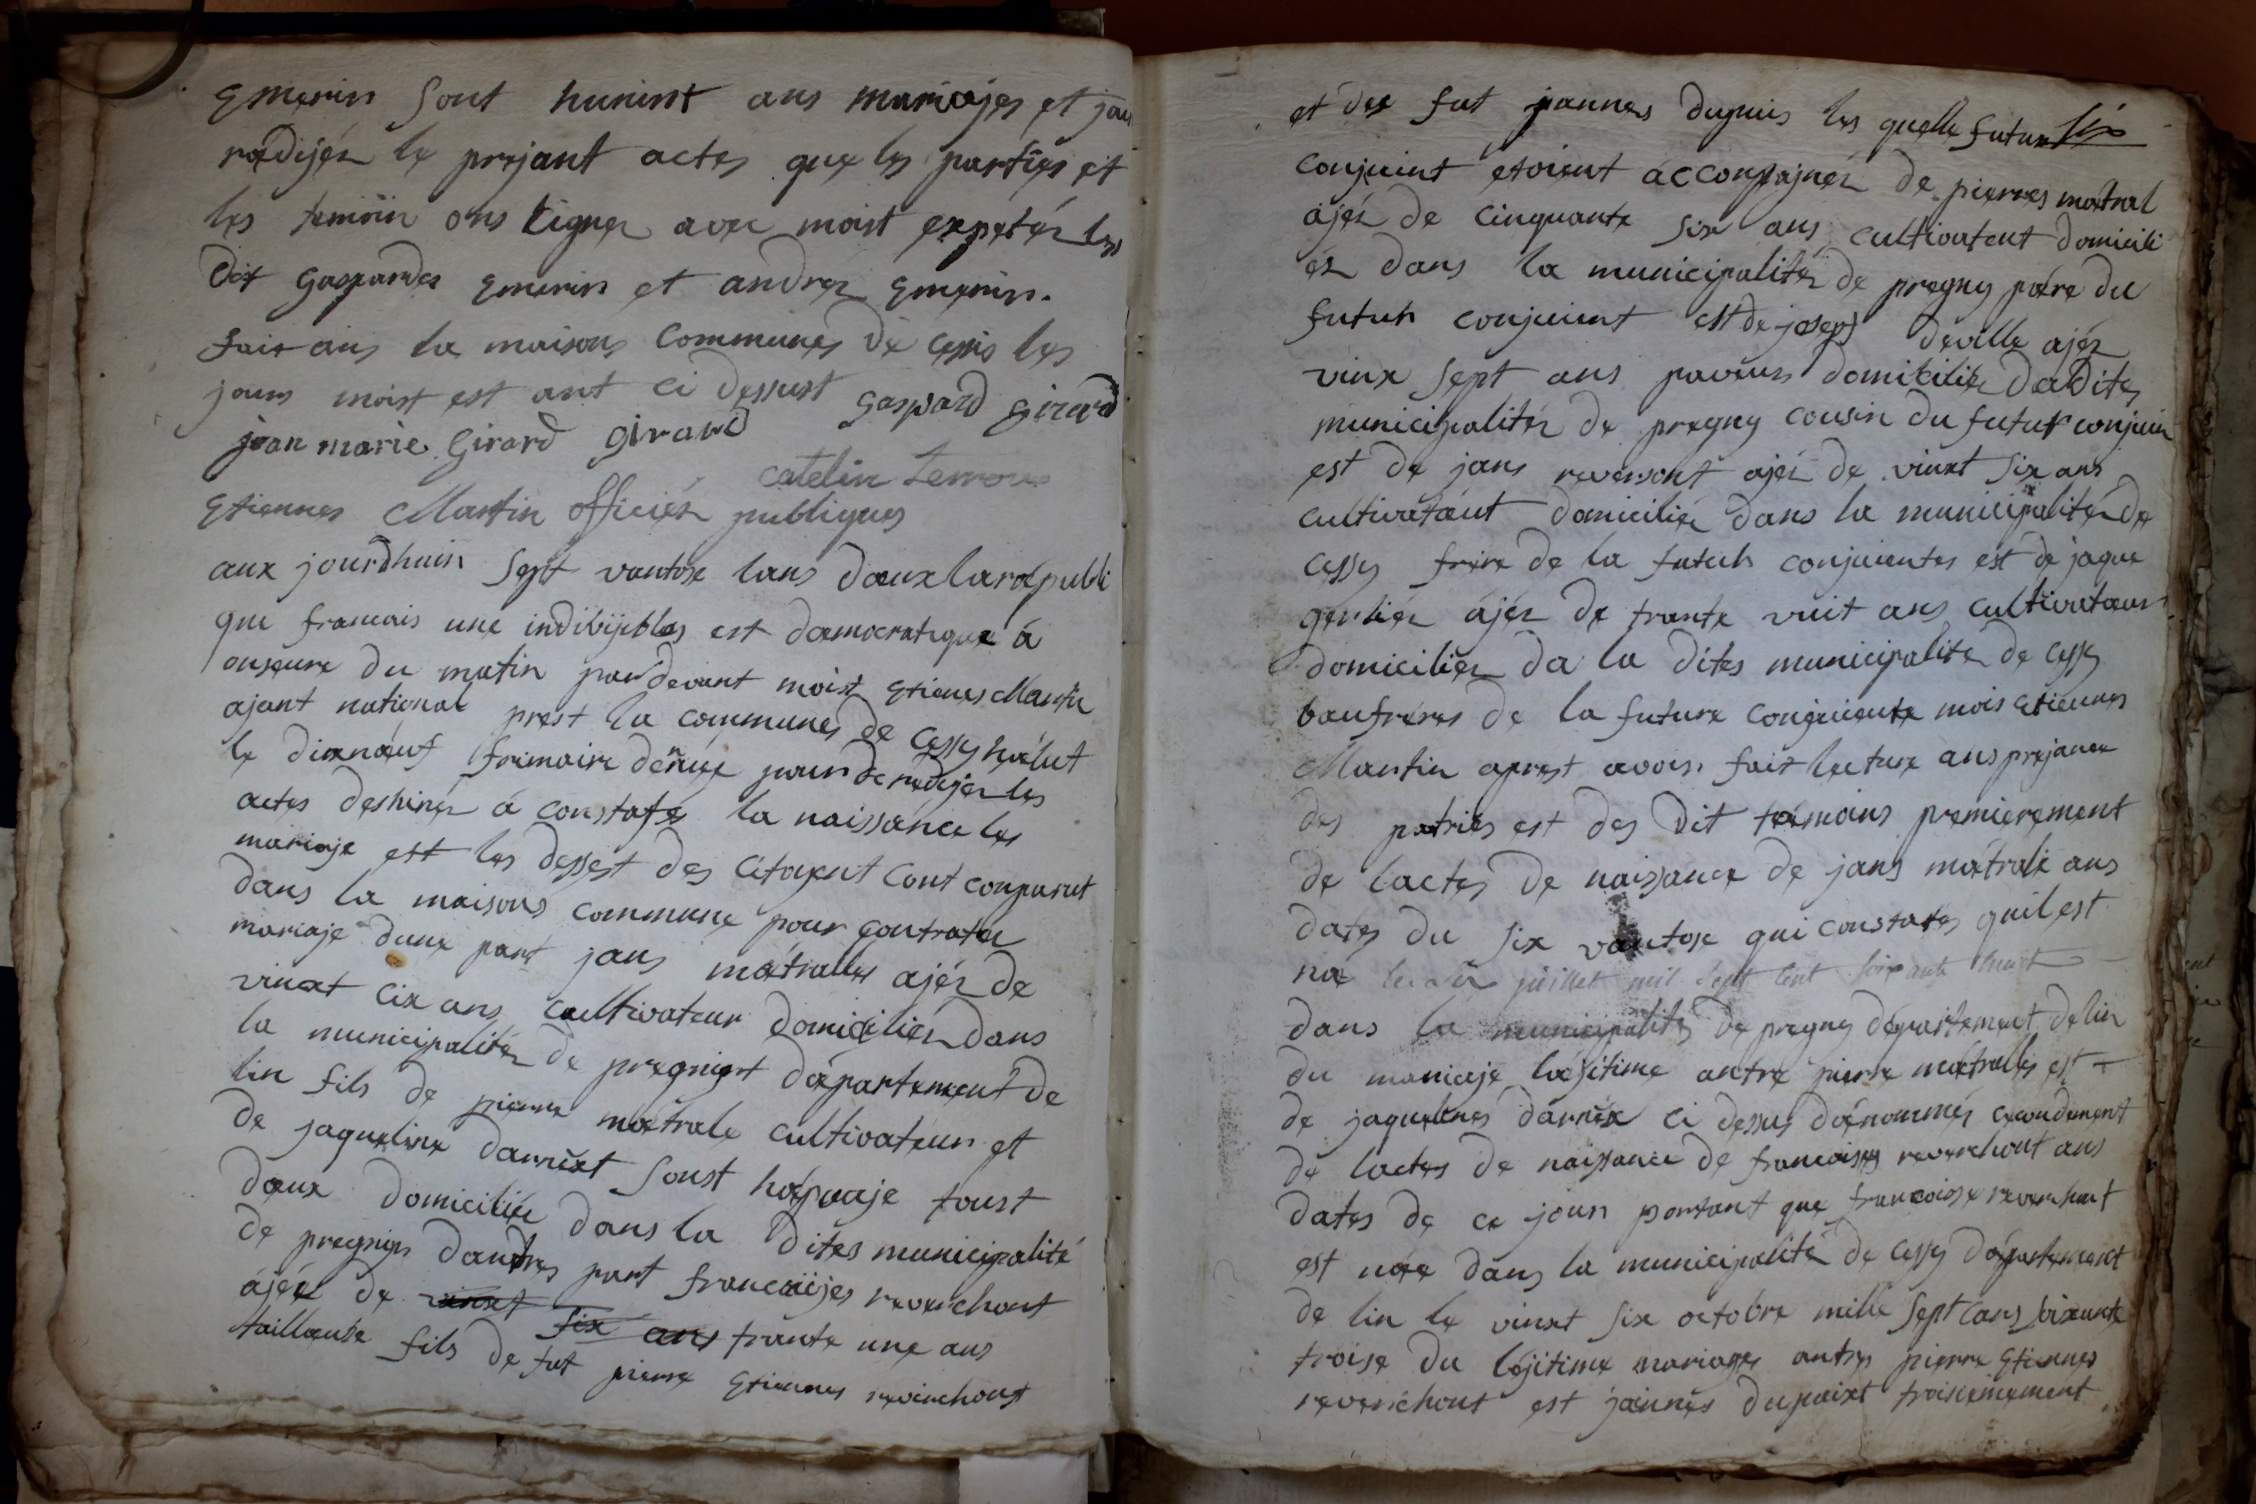 Emerin sont huninst ans mariajes et jai
rédijér le prejant actes que les parties et
les temöin ons Signer avec moist expétér les
dit gaspardes Emerin et andrez Emerin.
fait ans la maisons communes de cessis les
jours moist est ant ci dessust gaspard girard
jean marie Girard girard
catelin
Etiennes Martin officiér publiques
aux jourdhuin Sept vantose lans daux la rapubli
que francais une indivijibles est damocratique á
onseure du matin pardevant moist Etienes Martin
ajant national prest la communes de Cessy háélut
le dixnaeuf frimaire dernier pour de redijér les
actes destinér á constatér la naissánce les
mariaje est les dessest des citoyent Cont conparut
dans la maisons commune pour contrater
mariaje dune part jans mátralles ajér de
vinxt cix ans cultivateur domiciliér dans
la municipalitér de pregnier dápartement de
lin fils de pierre mátrale cultivateur et
de jaqueline darnext Soust hápouaje toust
daux domiciliée dans la dites municipalité
de pregnin dautres part francaijes reverchont
ájéé de vinxt six ans trante une ans
tailleuse fils de fut pierre Etiennes reverchont
et de fut jannes dupuis les quelle futur six
conjuint etoient accompajnér de pierres matral
ajér de cinquante six ans cultivatent domicili
ér dans la municipalitér de pregny páre du
futuh conjuient est de josepj deville ajér
vinx sept ans paveurs domicilier daditer
municipalitér de pregny cousin du futur conjuin
est de jans reversont ajér de vinxt six ans
cultivatáut domiciliér dans la municipalitér de
cessy frere de la futuh conjuientes est de jaque
gerliér ájér de trante vuit ans cultivataur
domiciliér da la dites municipaliter de cessy
baufréres de la future conjuiente mois Etiennes
Martin aprest avoir fait lecture ans prejance
des patriés est des dit támoins premierement
de lactes de naissance de jans mátrale ans
dates du six vantose qui constates quil est
ná juillet mil sept cent soixante huit
dans la municipalités de pregny département delin
du mariaje lájitime antre pierre mátralles est
de jaquelines darnex ci dessus dánommés cecondement
de lactes de naissance de francaises reverchont ans
dates de ce jour portant que francoise reverchont
est náe dans la municipalité de cessy dápartement
de lin le vinxt six octobre mille sept cans soixante
troise du lejitime mariages antres pierre Etiennes
reverichont est jánnes dupaixt troisiemement